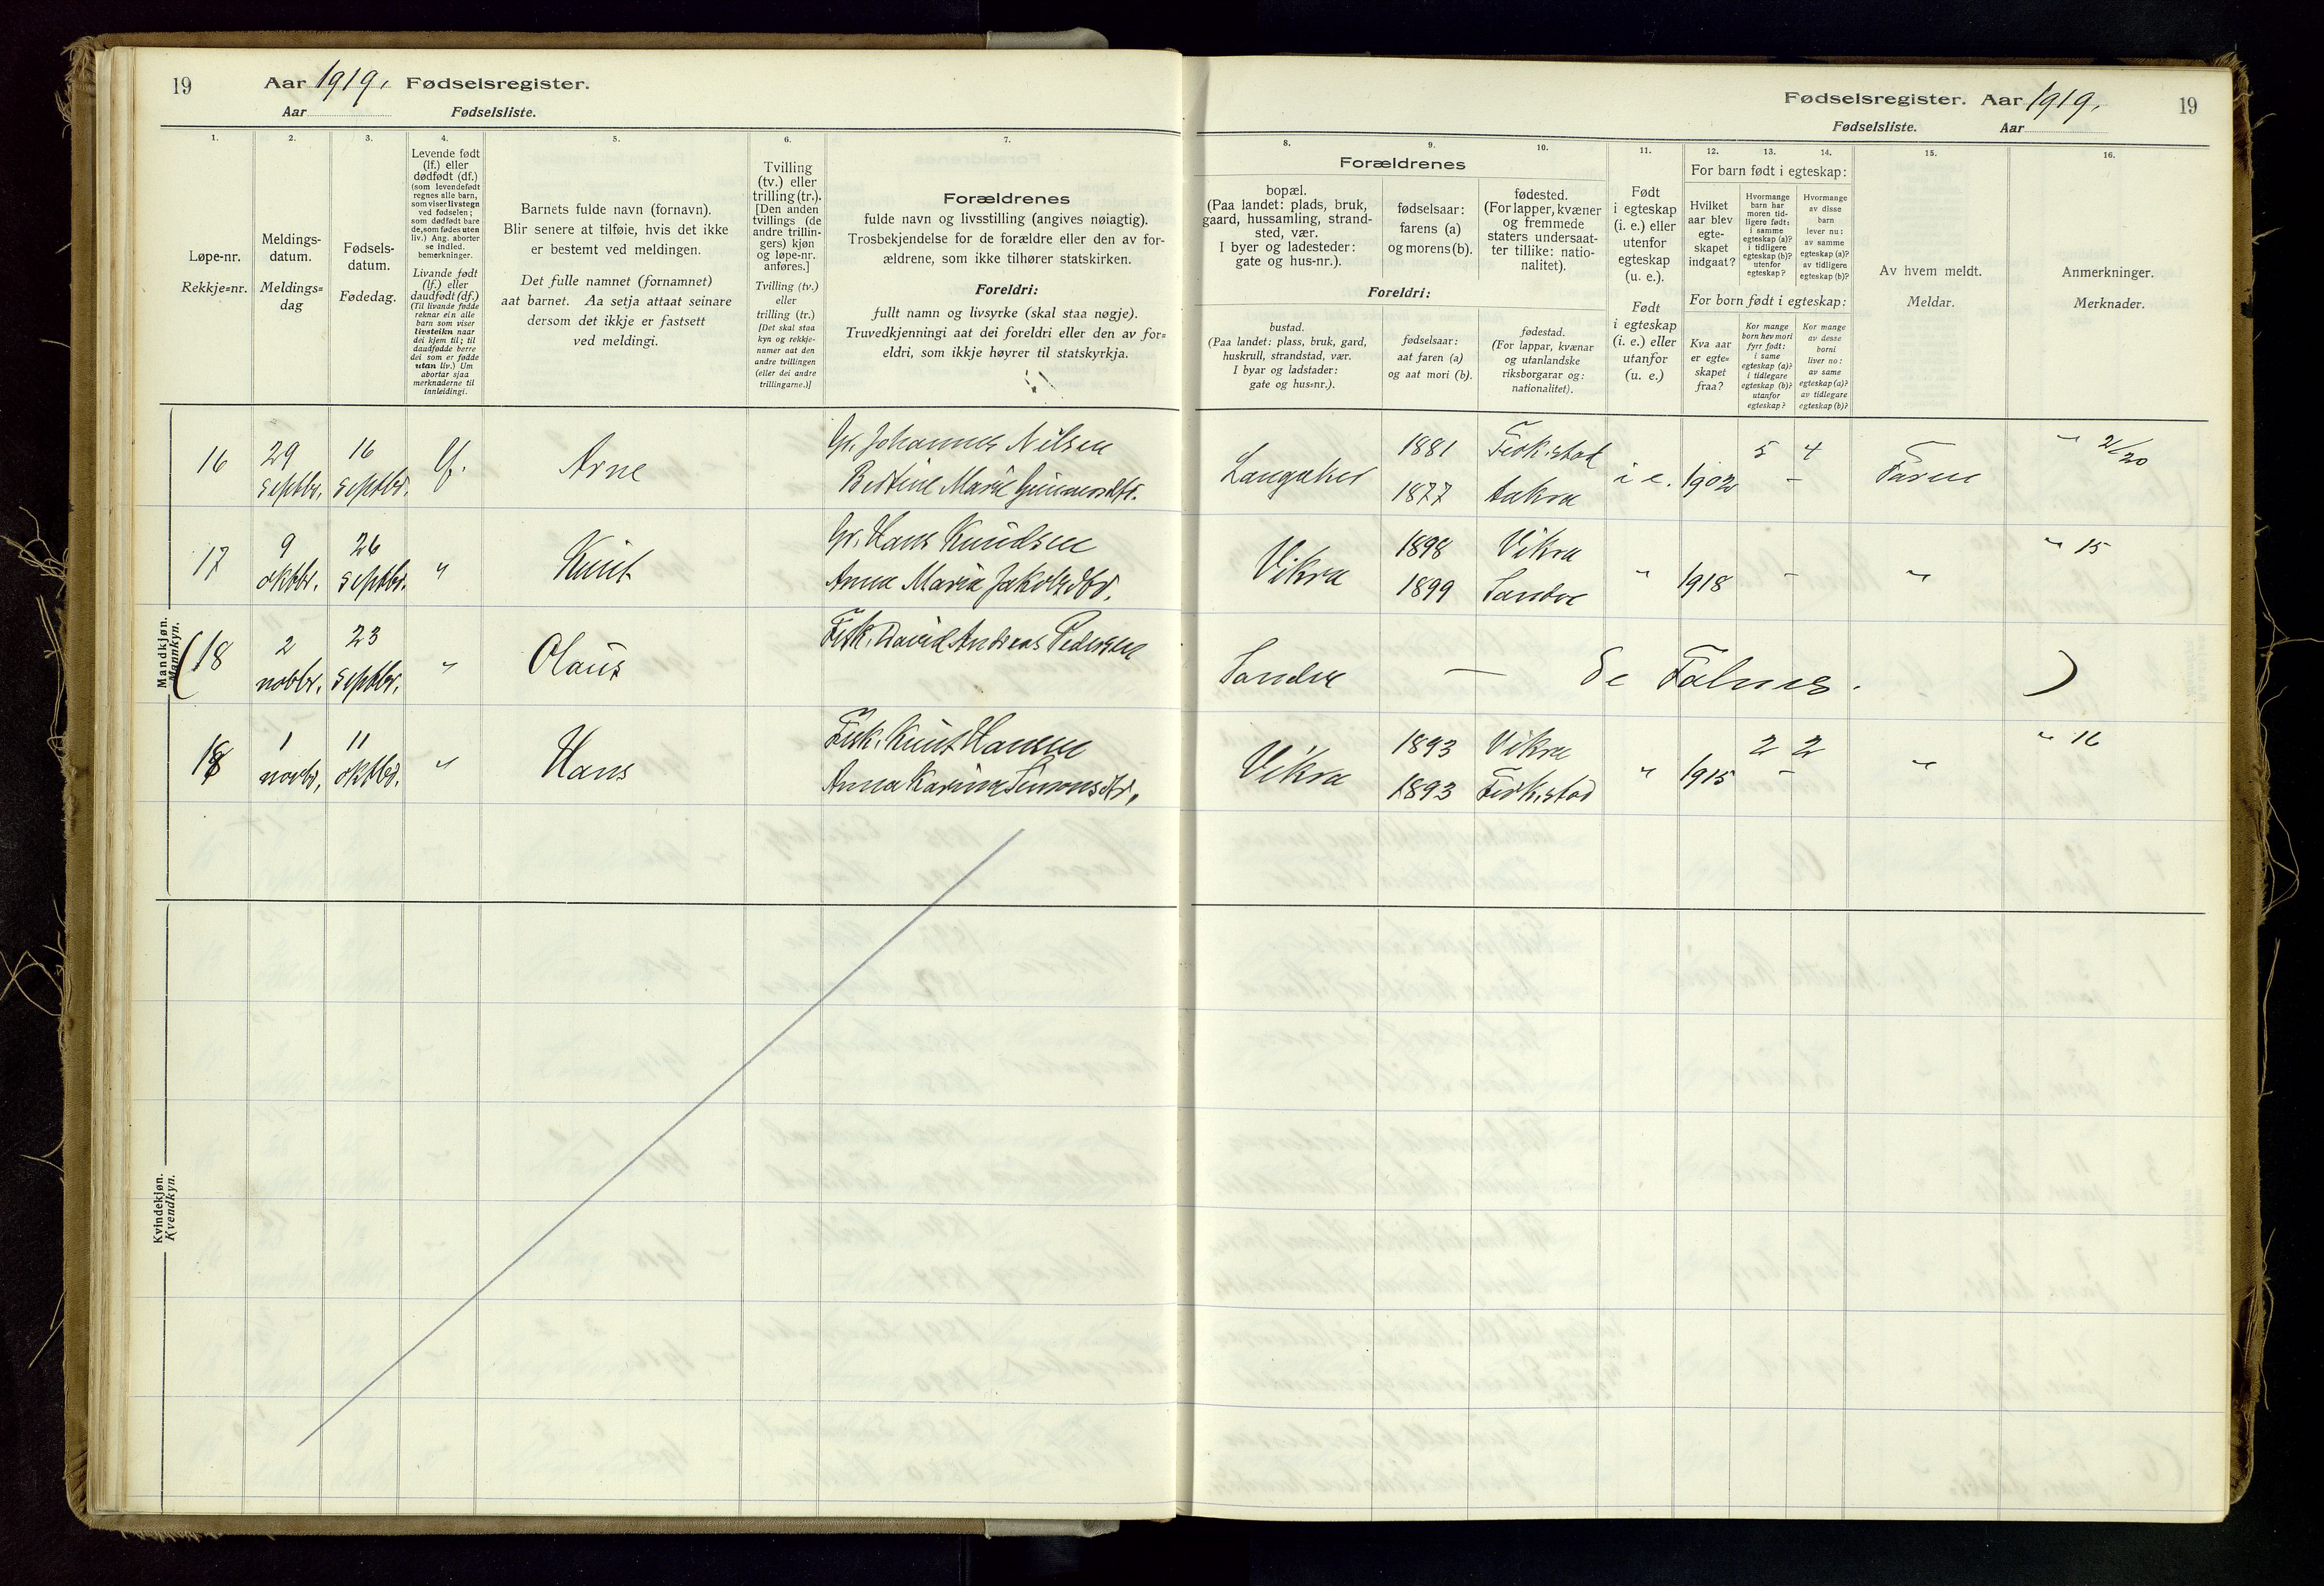 19 Aar 1919, Fødselsregister.
Aar Fødselsliste.
Fødselsregister. Aar 1919, 19
Fødselsliste. Aar
1.
2.
3.
4.
5.
6.
7.
Løpe-nr.
Rekkje=nr.
Meldings-
datum.
Meldings=
dag
Fødsels-
datum.
Fødedag.
Levende født
(lf.) eller
dødfødt (df.)
(som levendefødt
regnes alle barn,
som viser livstegn
ved fødselen;
som dødfødt bare
de, som fødes uten
liv.) Ang. aborter
se indled.
bemerkninger.
Livande født
(lf.) eller
daudfødt (df.)
(Til livande fødde
reknar ein alle
born som viser
livsteikn naar
dei kjem til; til
daudfødde berre
dei som er fødde
utan liv.) Um
abortar sjaa
merknaderne til
innleidingi.
Barnets fulde navn (fornavn).
Blir senere at tilføie, hvis det ikke
er bestemt ved meldingen.
Det fulle namnet (fornamnet)
aat barnet. Aa setja attaat seinare
dersom det ikkje er fastsett
ved meldingi.
Tvilling
(tv.) eller
trilling (tr.).
[Den anden
tvillings (de
andre trillin-
gers) kjøn
og løpe-nr.
anføres.]
Tvilling (tv.)
eller
trilling (tr.)
[Det skal staa
kyn og rekkje-
numer aat den
andre tvillingen
(eller dei andre
trillingarne.)]
Forældrenes
fulde navn og livsstilling (angives nøiagtig).
Trosbekjendelse for de forældre eller den av for-
ældrene, som ikke tilhører statskirken.
Foreldri:
fullt namn og livsyrke (skal staa nøgje).
Truvedkjenningi aat dei foreldri eller den av for=
eldri, som ikkje høyrer til statskyrkja.
8.
9.
10.
11.
12.
13.
14.
15.
16.
Forældrenes
bopæl.
(Paa landet: plads, bruk,
gaard, hussamling, strand-
sted, vær.
I byer og ladesteder:
gate og hus-nr.).
fødselsaar:
farens (a)
og morens (b).
fødested.
(For lapper, kvæner
og fremmede
staters undersaat-
ter tillike: natio-
nalitet).
Foreldri:
bustad.
(Paa landet: plass, bruk, gard,
huskrull, strandstad, vær.
I byar og ladstader:
gate og hus=nr.).
fødselsaar:
aat faren (a)
og aat mori (b).
fødestad.
(For lappar, kvænar
og utanlandske
riksborgarar og:
nationalitet).
Født
i egteskap
(i. e.) eller
utenfor
egteskap
(u. e.).
Født
i egteskap
(i. e.) eller
utanfor
(u. e.)
For barn født i egteskap:
Hvilket
aar blev
egte-
skapet
indgaat?
Hvormange
barn har
moren tid-
ligere født:
i samme
egteskap (a)?
i tidligere
egteskap (b)?
utenfor
egteskap?
Hvormange
av disse
barn
lever nu:
av samme
egteskap (a)?
av tidligere
egteskap (b)?
For born født i egteskap:
Kva aar
er egte=
skapet
fraa?
Kor mange
born hev mori
fyrr født:
i same
egteskap (a)?
i tidlegare
egteskap (b)?
utanfor
egteskap?
Kor mange
av desse
borni
liver no:
av same
egteskap (a)?
av tidlegare
egteskap (b)?
Av hvem meldt.
Meldar.
Anmerkninger.
Merknader.
Mandkjøn.
Mannkyn.
16 29 septbr. 16 septbr. lf. Arne Gr. Johannes Nilsen
Bertine Marie Gunnarsdtr.
Langaker 1881 Ferkistad i e. 1902 5 4 Faren " 21/20
1877 Aakra -
17 9 oktbr. 26 septbr. " Knut Gr. Hans Knudsen
Anna Maria Jakobsdtr.
Vikra 1898 Vikra " 1918 - " " 15
1899 Sandve
(18 2 novbr. 23 septbr. " Olaus Fisk. David Andreas Pedersen
Sandve — Se Falnes. )
18 1 novbr. 11 oktbr. " Hans Fisk. Knut Hansen
Anna Karina Simonsdtr.
Vikra 1893 Vikra " 1915 2 2 " " 16
1893 Ferkistad -
Kvindekjøn.
Kvendkyn.